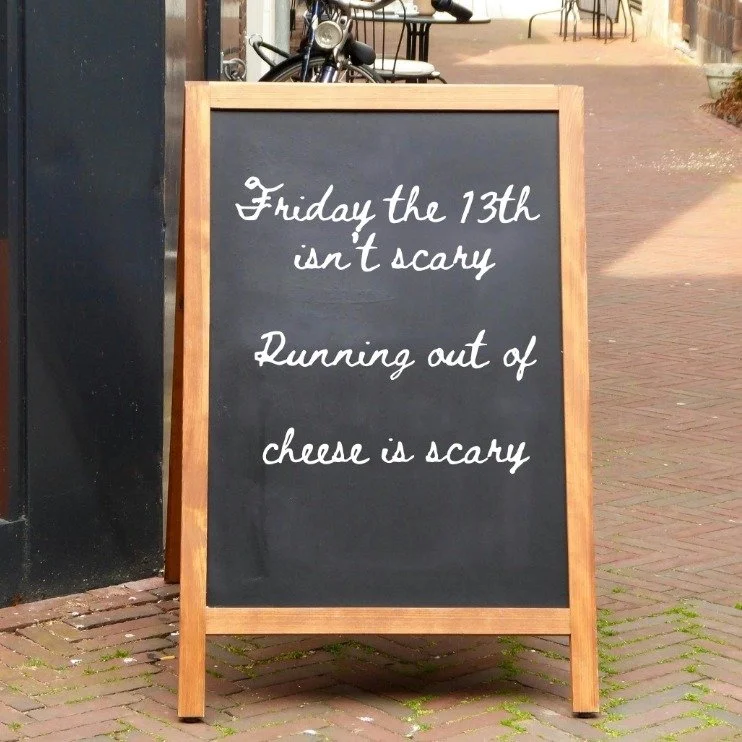 Friday the 13th
isn't scary
Running out of
cheese is scary